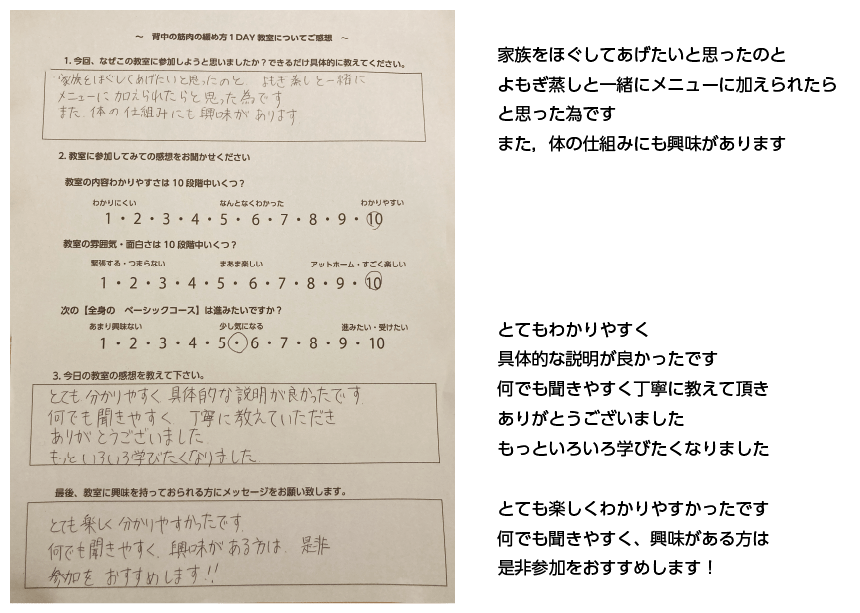 ～　背中の筋肉の緩め方１DAY 教室についてご感想　～
1. 今回、なぜこの教室に参加しようと思いましたか？できるだけ具体的に教えてください。
家族をほぐしてあげたいと思ったのと、よもぎ蒸しと一緒に
メニューに加えられたらと思った為です
また、体の仕組みにも興味があります
2. 教室に参加してみての感想をお聞かせください
教室の内容わかりやすさは 10 段階中いくつ？
わかりにくい　なんとなくわかった　わかりやすい
1・2・3・4・5・6・7・8・9・10
教室の雰囲気・面白さは 10 段階中いくつ？
緊張する・つまらない　まあま楽しい　アットホーム・すごく楽しい
1・2・3・4・5・6・7・8・9・10
次の【全身の　ベーシックコース】は進みたいですか？
あまり興味ない　少し気になる　進みたい・受けたい
1・2・3・4・5・6・7・8・9・10
3. 今日の教室の感想を教えて下さい。
とても分かりやすく 具体的な説明が良かったです
何でも聞きやすく 丁寧に教えていただき
ありがとうございました
もっといろいろ学びたくなりました
最後、教室に興味を持っておられる方にメッセージをお願い致します。
とても楽しく分かりやすかったです
何でも聞きやすく、興味がある方は 是非
参加を おすすめします!!
家族をほぐしてあげたいと思ったのと
よもぎ蒸しと一緒にメニューに加えられたら
と思った為です
また，体の仕組みにも興味があります
とてもわかりやすく
具体的な説明が良かったです
何でも聞きやすく丁寧に教えて頂き
ありがとうございました
もっといろいろ学びたくなりました
とても楽しくわかりやすかったです
何でも聞きやすく、興味がある方は
是非参加をおすすめします！